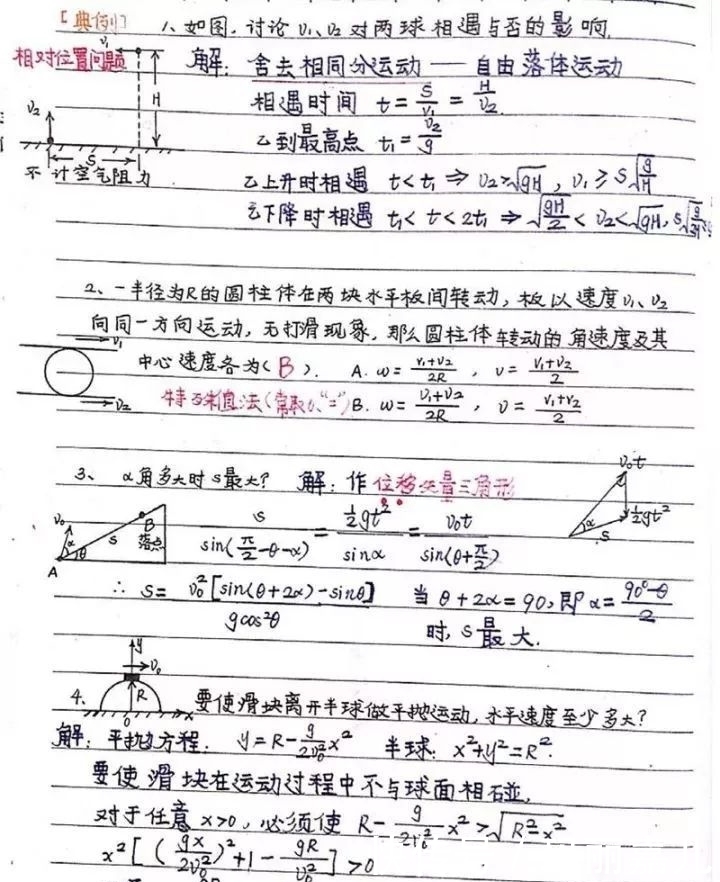 [典例] 1、如图，讨论 v₁、v₂ 对两球相遇与否的影响.
相对位置问题
v₁
H
v₂
S
不计空气阻力
解：舍去相同分运动 —— 自由落体运动
相遇时间 t = S/v₁ = H/v₂.
乙到最高点 t₁ = v₂/g
乙上升时相遇 t < t₁ ⇒ v₂ > √gH , v₁ ≥ S√(g/H)
乙下降时相遇 t₁ < t < 2t₁ ⇒ √(gH/2) < v₂ < √gH,
2、一半径为R的圆柱体在两块水平板间转动，板以速度 v₁、v₂
向同一方向运动，无打滑现象，那么圆柱体转动的角速度及其
v₁
中心速度各为( B ). A. ω = (v₁+v₂)/2R , v = (v₁+v₂)/2
v₂
特殊值法(常取0、"=") B. ω = (v₁+v₂)/2R , v = (v₁+v₂)/2
3、 α角多大时 s 最大? 解：作位移矢量三角形
v₀t
½gt²
α
s
v₀
α
θ
s
B
落点
A
s/sin(π/2-θ-α) = ½gt²/sinα = v₀t/sin(θ+π/2)
∴ S = v₀²[sin(θ+2α)-sinθ]/gcos²θ 当 θ+2α=90, 即 α = (90°-θ)/2
时, S最大.
y
v₀
R
0
x
4、 要使滑块离开半球做平抛运动, 水平速度至少多大?
解：平抛方程. y = R - g/2v₀² x² 半球：x²+y²=R².
要使滑块在运动过程中不与球面相碰.
对于任意 x>0, 必须使 R - g/2v₀² x² > √(R²-x²)
x²[(gx/2v₀²)²+1 - gR/v₀²] > 0